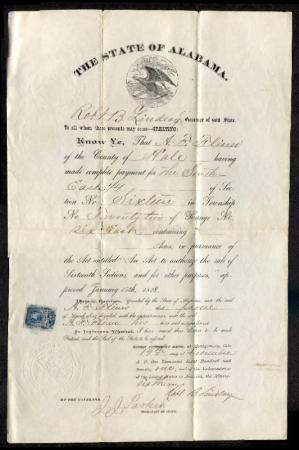 THE STATE OF ALABAMA.
Robt B. Lindsay Governor of said State.
To all whom these presents may come—GREETING:
Know Ye, That A. F.
of the County of Hale having
made complete payment for the South
East 1/4 of Sec-
tion No. Sixteen in Township
No. Twenty two of Range No.
Six East containing
Acres, in pursuance of
the Act entitled An Act to authorize the sale of
Sixteenth Sections, and for other purposes, ap-
proved January 15th, 1828.
granted by the State of Alabama, unto the said
A. F.
with the appurtenances, unto the said
A. F. his heirs and assigns forever.
In Testimony Whereof, I have caused these
Patent, and the Seal of the State to be affixed.
at Montgomery, this
19th day of December
A. D. One Thousand Eight Hundred and
Seventy one and of the Independence
of the United States of America, the Ninety
sixth year
Robt B. Lindsay
BY THE GOVERNOR.
J. J. Parker
SECRETARY OF STATE.